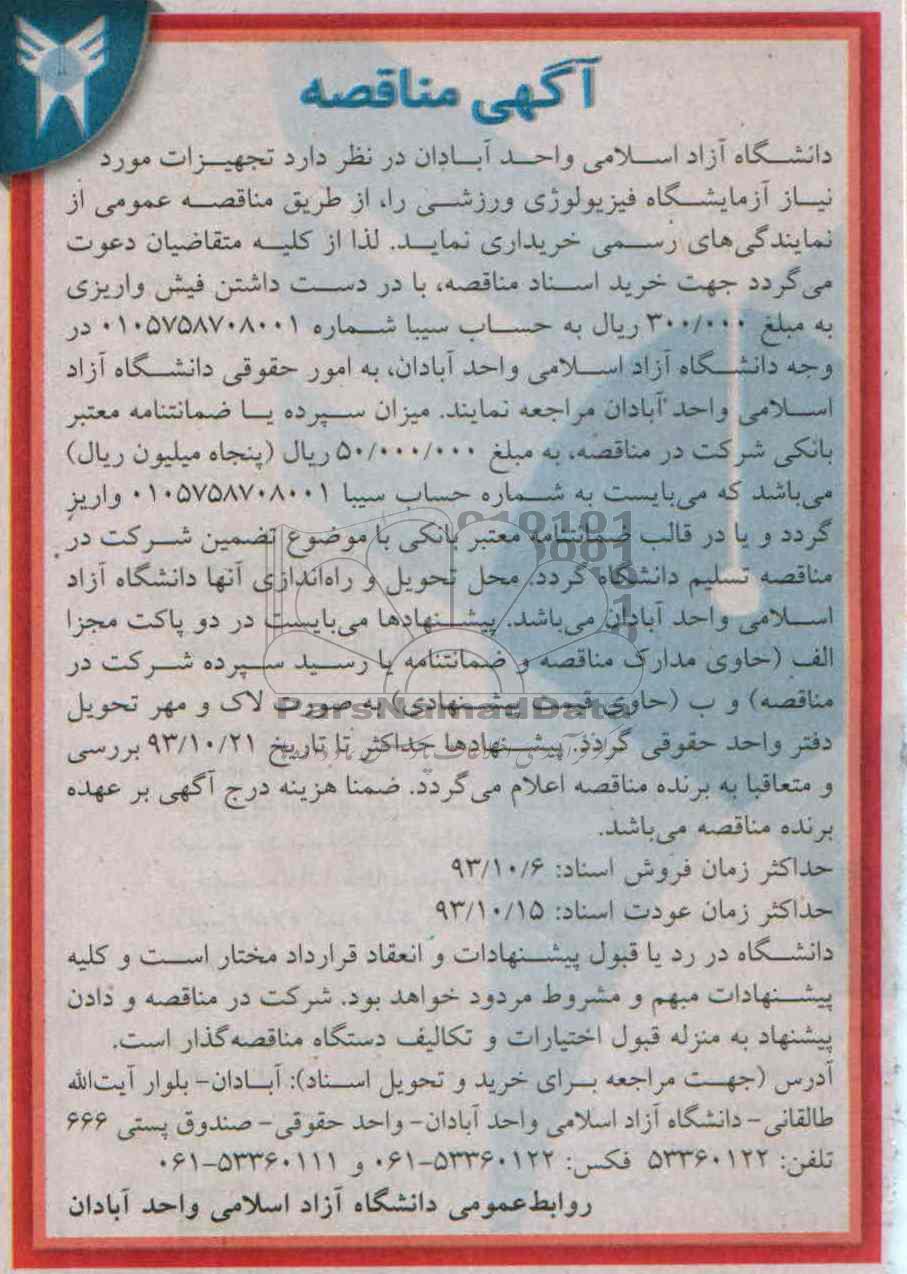 آگهی مناقصه
دانشگاه آزاد اسلامی واحد آبادان در نظر دارد تجهیزات مورد
نیاز آزمایشگاه فیزیولوژی ورزشی را، از طریق مناقصه عمومی از
نمایندگی‌های رسمی خریداری نماید. لذا از کلیه متقاضیان دعوت
می‌گردد جهت خرید اسناد مناقصه، با در دست داشتن فیش واریزی
به مبلغ ۳۰۰/۰۰۰ ریال به حساب سیبا شماره ۰۱۰۵۷۵۸۷۰۸۰۰۱ در
وجه دانشگاه آزاد اسلامی واحد آبادان، به امور حقوقی دانشگاه آزاد
اسلامی واحد آبادان مراجعه نمایند. میزان سپرده یا ضمانتنامه معتبر
بانکی شرکت در مناقصه، به مبلغ ۵۰/۰۰۰/۰۰۰ ریال (پنجاه میلیون ریال)
می‌باشد که می‌بایست به شماره حساب سیبا ۰۱۰۵۷۵۸۷۰۸۰۰۱ واریز
گردد و یا در قالب ضمانتنامه معتبر بانکی با موضوع تضمین شرکت در
مناقصه تسلیم دانشگاه گردد. محل تحویل و راه‌اندازی آنها دانشگاه آزاد
اسلامی واحد آبادان می‌باشد. پیشنهادها می‌بایست در دو پاکت مجزا
الف (حاوی مدارک مناقصه و ضمانتنامه یا رسید سپرده شرکت در
مناقصه) و ب (حاوی قیمت پیشنهادی) به صورت لاک و مهر تحویل
دفتر واحد حقوقی گردد. پیشنهادها حداکثر تا تاریخ ۹۳/۱۰/۲۱ بررسی
و متعاقبا به برنده مناقصه اعلام می‌گردد. ضمنا هزینه درج آگهی بر عهده
برنده مناقصه می‌باشد.
حداکثر زمان فروش اسناد: ۹۳/۱۰/۶
حداکثر زمان عودت اسناد: ۹۳/۱۰/۱۵
دانشگاه در رد یا قبول پیشنهادات و انعقاد قرارداد مختار است و کلیه
پیشنهادات مبهم و مشروط مردود خواهد بود. شرکت در مناقصه و دادن
پیشنهاد به منزله قبول اختیارات و تکالیف دستگاه مناقصه‌گذار است.
آدرس (جهت مراجعه برای خرید و تحویل اسناد): آبادان- بلوار آیت‌الله
طالقانی- دانشگاه آزاد اسلامی واحد آبادان- واحد حقوقی- صندوق پستی ۶۶۶
تلفن: ۵۳۳۶۰۱۲۲ فکس: ۵۳۳۶۰۱۲۲-۰۶۱ و ۵۳۳۶۰۱۱۱-۰۶۱
روابط‌عمومی دانشگاه آزاد اسلامی واحد آبادان
ParsNamadData